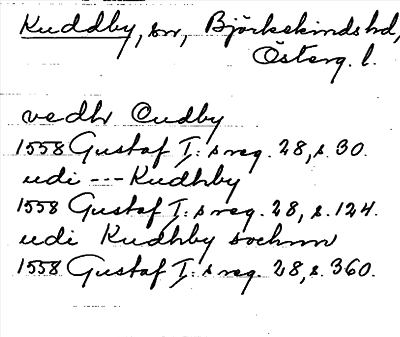 Kuddby, sn, Björkekinds hd,
Österg. l.
vedhr Cudby
1558 Gustaf I:s reg. 28, s. 30.
udi --- Kudhby
1558 Gustaf I:s reg. 28, s. 124.
udi Kudhby sochnn
1558 Gustaf I:s reg. 28, s. 360.